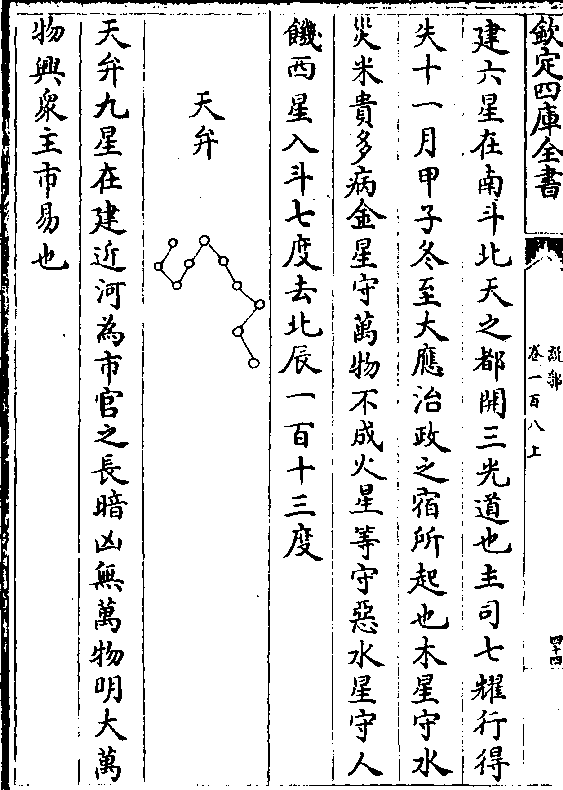 欽定四庫全書
說郛
卷一百八上
四十四
建六星在南斗北天之都開三光道也主司七耀行得
失十一月甲子冬至大應治政之宿所起也木星守水
災米貴多病金星守萬物不成火星等守惡水星守人
饑西星入斗七度去北辰一百十三度
天弁
天弁九星在建近河為市官之長暗凶無萬物明大萬
物興衆主市易也